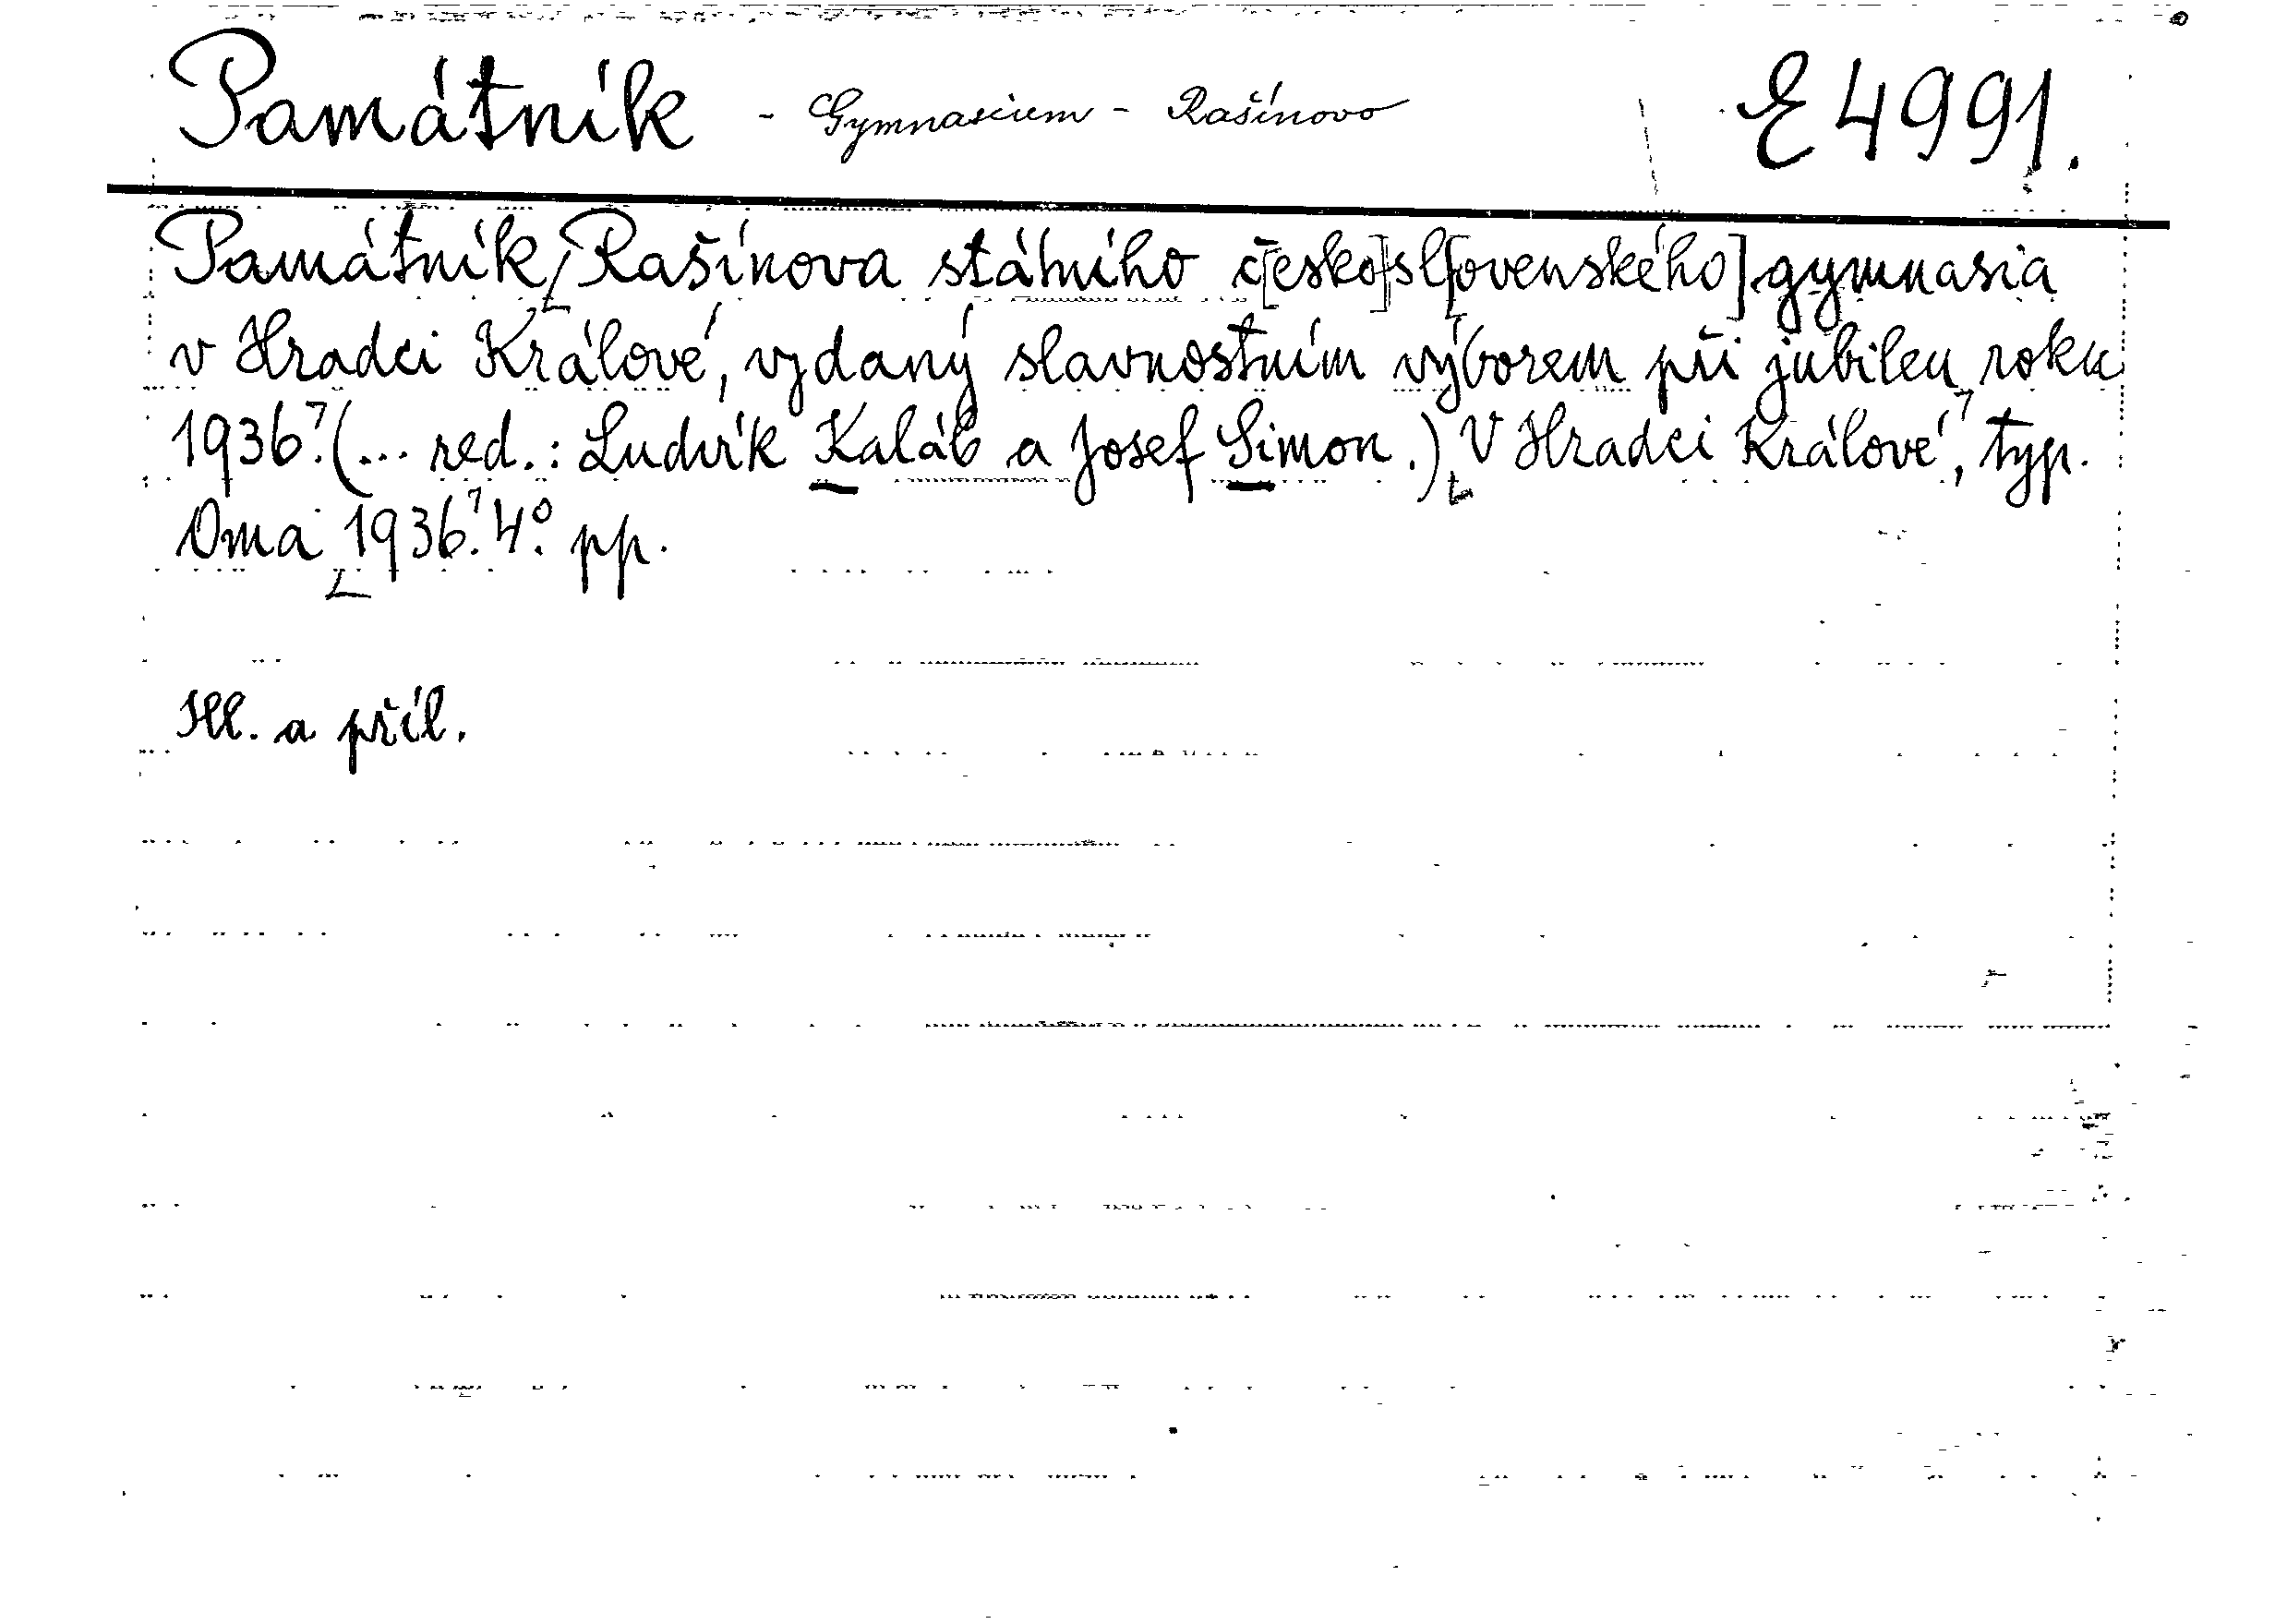 Památník - Gymnasium - Rašínovo E 4991.
Památník Rašínova státního č[esko]sl[ovenského] gymnasia
v Hradci Králové, vydaný slavnostním výborem při jubileu roku
1936. (... red.: Ludvík Kaláb a Josef Simon.) V Hradci Králové, typ.
Oma 1936. 4°. pp.
Ill. a příl.